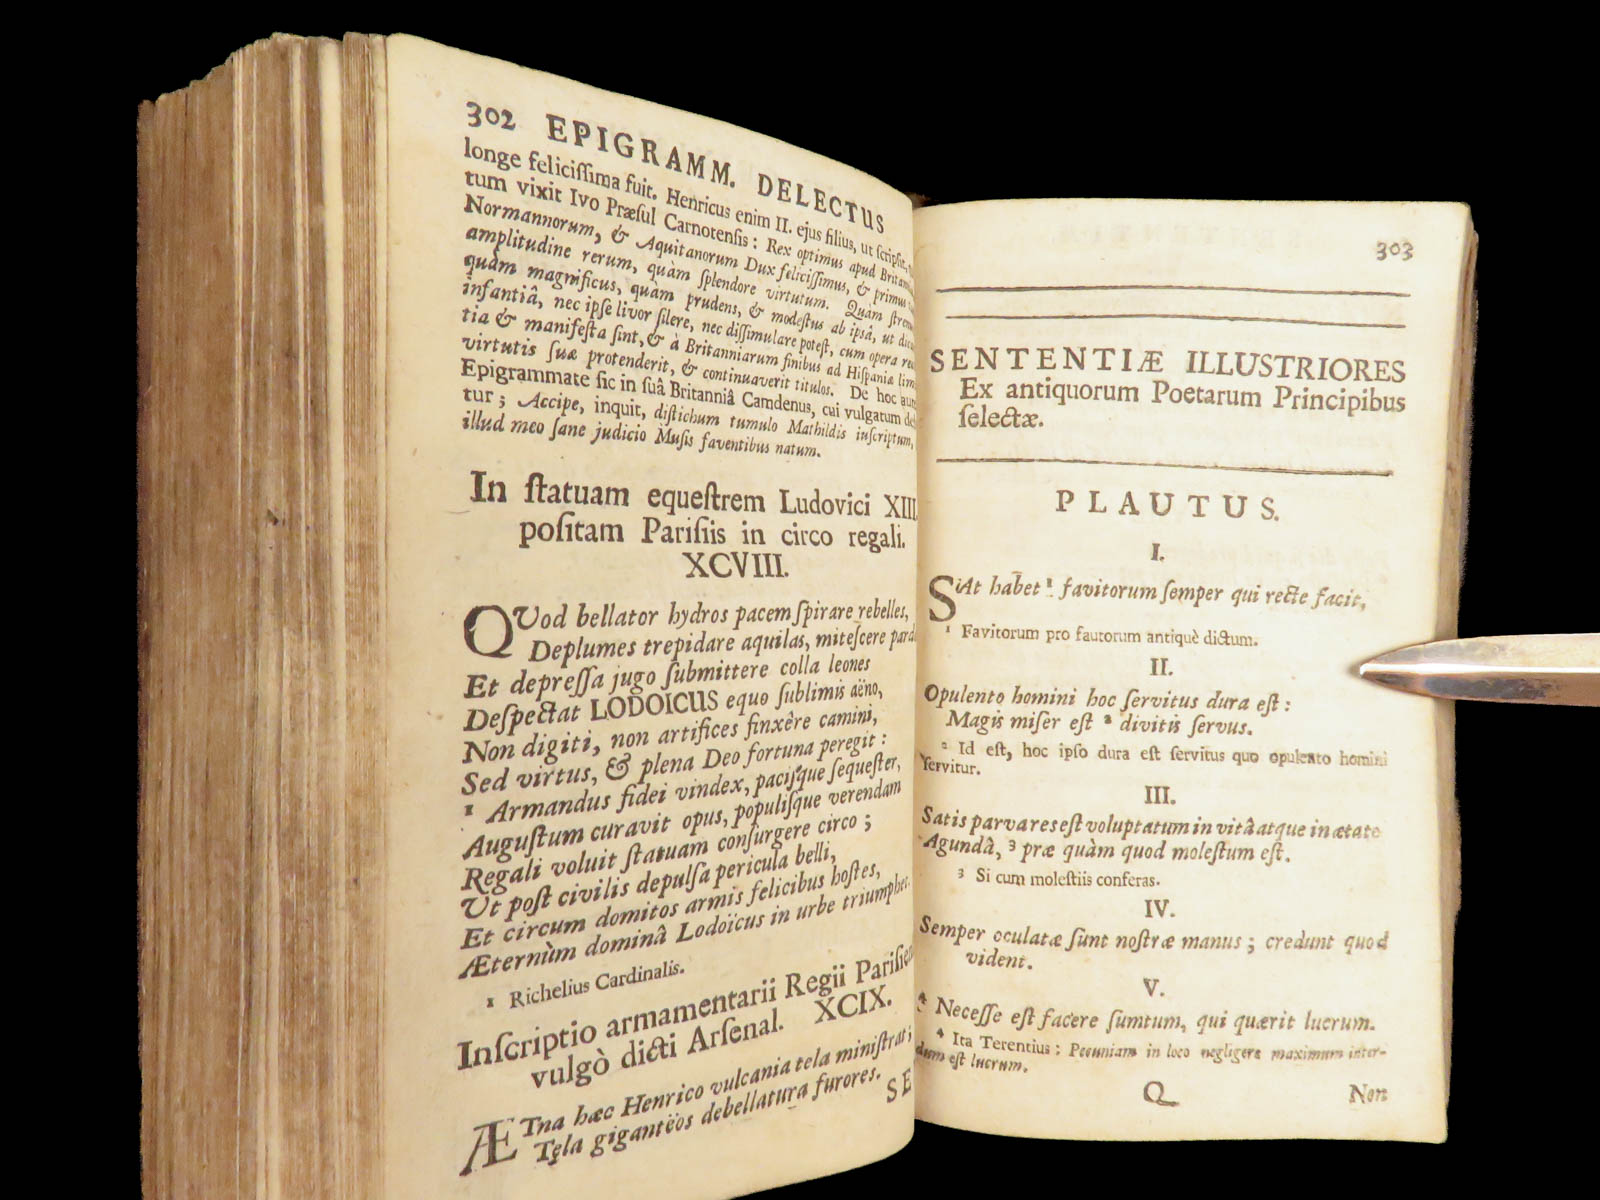 302 EPIGRAMM. DELECTUS
longe feliciſſima fuit. Henricus enim II. ejus filius, ut ſcripſit,
tum vixit Ivo Præſul Carnotenſis: Rex optimus apud
Normannorum, & Aquitanorum Dux feliciſſimus, & primus
amplitudine rerum, quàm ſplendore virtutum. Quàm
quàm magnificus, quàm prudens, & modeſtus ab ipsâ, ut
infantiâ, nec ipſe livor ſilere, nec diſſimulare poteſt, cum opera
tia & manifeſta ſint, & à Britanniarum finibus ad Hiſpaniæ
virtutis ſuæ protenderit, & continuaverit titulos. De hoc
Epigrammate ſic in ſuâ Britanniâ Camdenus, cui vulgatum
tur; Accipe, inquit, diſtichum tumulo Mathildis inſcriptum,
illud meo ſane judicio Muſis faventibus natum.
In ſtatuam equeſtrem Ludovici XIII
poſitam Pariſiis in circo regali.
XCVIII.
QUod bellator hydros pacem ſpirare rebelles,
Deplumes trepidare aquilas, miteſcere
Et depreſſa jugo ſubmittere colla leones
Deſpectat LODOICUS equo ſublimis aëno,
Non digiti, non artifices finxêre camini,
Sed virtus, & plena Deo fortuna peregit:
1 Armandus fidei vindex, paciſque ſequeſter,
Auguſtum curavit opus, populiſque verendam
Regali voluit ſtatuam conſurgere circo;
Ut poſt civilis depulſa pericula belli,
Et circum domitos armis felicibus hoſtes,
Æternùm dominâ Lodoïcus in urbe triumphet.
1 Richelius Cardinalis.
Inſcriptio armamentarii Regii
vulgò dicti Arſenal. XCIX.
ÆTna hæc Henrico vulcania tela miniſtrat;
Tela gigantëos debellatura furores.
SE
303
SENTENTIÆ ILLUSTRIORES
Ex antiquorum Poetarum Principibus
ſelectæ.
PLAUTUS.
I.
SAt habet 1 favitorum ſemper qui recte facit,
1 Favitorum pro fautorum antiquè dictum.
II.
Opulento homini hoc ſervitus dura eſt:
Magis miſer eſt 2 divitis ſervus.
2 Id eſt, hoc ipſo dura eſt ſervitus quo opulento homini
ſervitur.
III.
Satis parva res eſt voluptatum in vitâ atque in ætate
Agundâ, 3 præ quàm quod moleſtum eſt.
3 Si cum moleſtiis conferas.
IV.
Semper oculatæ ſunt noſtræ manus; credunt quod
vident.
V.
4 Neceſſe eſt facere ſumtum, qui quærit lucrum.
4 Ita Terentius: Pecuniam in loco negligere maximum inter-
dum eſt lucrum.
Q Non